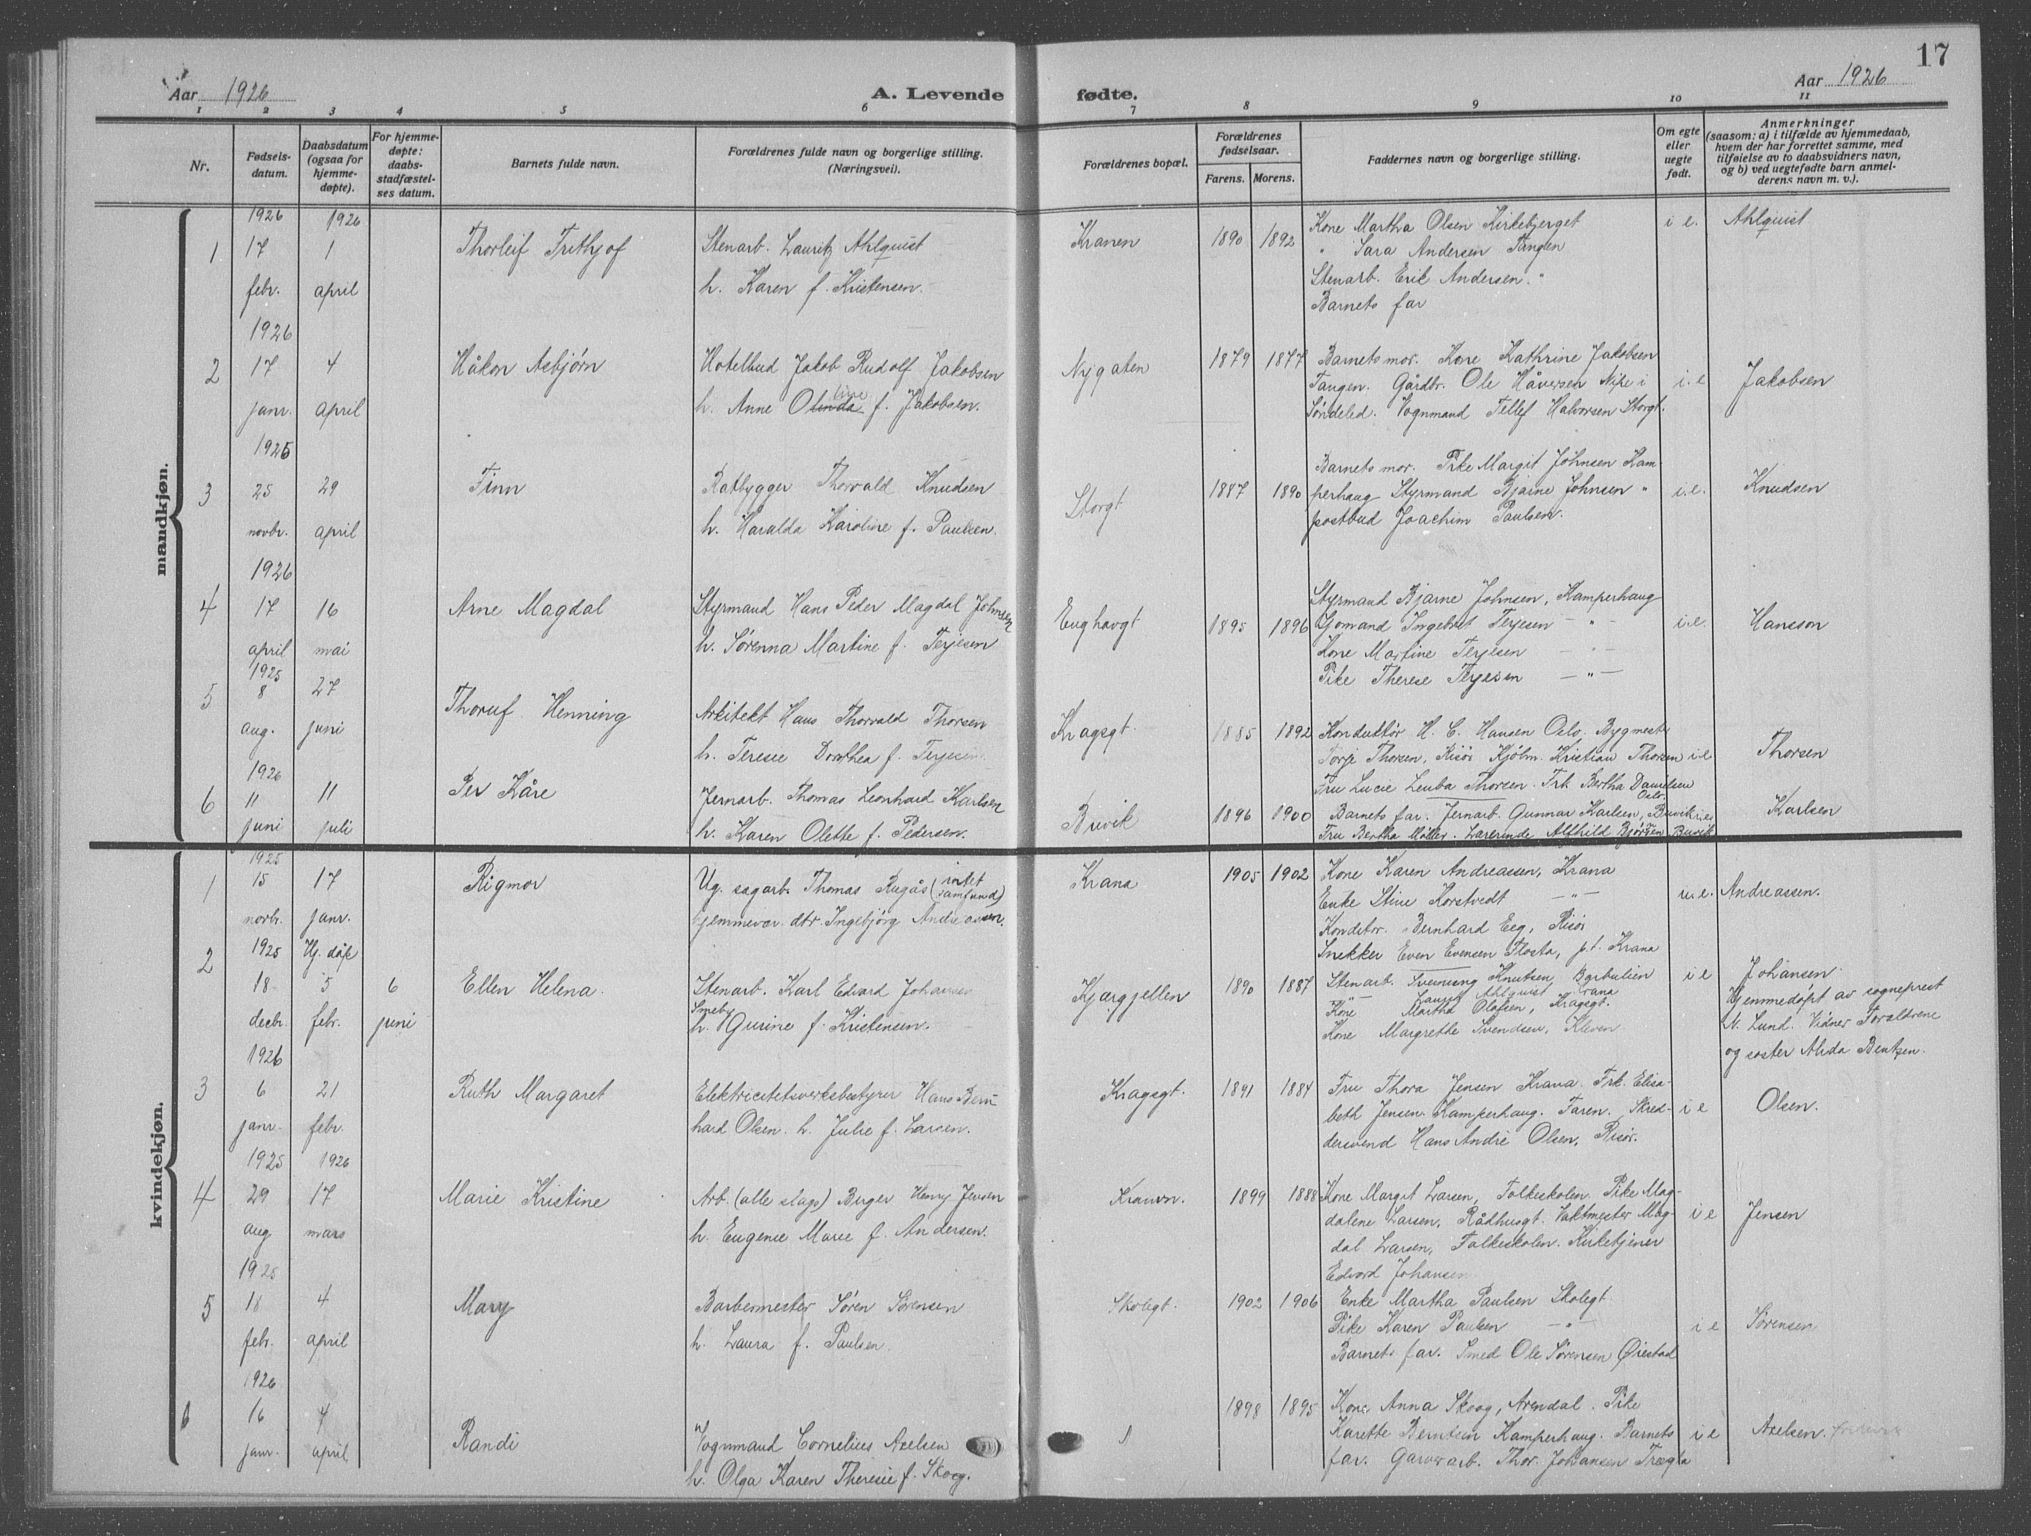 17
Aar 1926
A. Levende
fødte.
Aar 1926
1 2 3 4 5 6 7 8 9 10 11
Nr.
Fødsels-
datum.
Daabsdatum
(ogsaa for
hjemme-
døpte).
For hjemme-
døpte:
daabs-
stadfæstel-
ses datum.
Barnets fulde navn.
Forældrenes fulde navn og borgerlige stilling.
(Næringsvei).
Forældrenes bopæl.
Forældrenes
fødselsaar.
Farens. Morens.
Faddernes navn og borgerlige stilling.
Om egte
eller
uegte
født.
Anmerkninger
(saasom: a) i tilfælde av hjemmedaab,
hvem der har forrettet samme, med
tilføielse av to daabsvidners navn,
og b) ved uegtefødte barn anmel-
derens navn m. v.).
mandkjøn.
1
1926
17
febr.
1926
1
april
Thorleif Frithjof
Stenarb. Lauritz Ahlquist
h. Karen f. Kristensen.
Kranen
1890 1892
Kone Martha Olsen Kirkebjerget
" Sara Andersen Tangen
Stenarb. Erik Andersen. "
Barnets far
i e.
Ahlquist
2
1926
17
janr.
4
april
Håkon Asbjørn
Hotelbud Jakob Rudolf Jakobsen
h. Anne Olinda f. Jakobsen.
line
Nygaten
1879 1877
Barnets mor. Kone Kathrine Jakobsen
Tangen. Gårdbr. Ole Håversen Nipe i
Søndeled. Vognmand Tellef Halvorsen Storgt.
i. e
Jakobsen
3
1925
25
novbr.
29
april
Finn
Båtbygger Thorvald Knudsen
h. Haralda Karoline f. Paulsen.
Storgt
1887 1890
Barnets mor. Pike Margit Johnsen Kam-
perhaug Styrmand Bjarne Johnsen "
postbud Joachim Paulsen.
i. e.
Knudsen
4
1926
17
april
16
mai
Arne Magdal
Styrmand Hans Peder Magdal Johnsen
h. Sørenna Martine f. Terjesen
Enghavgt
1895 1896
Styrmand Bjarne Johnsen, Kamperhaug
Sjømand Ingebret Terjesen - " -
Kone Martine Terjesen - " -
Pike Therese Terjesen - " -
i. e
Hansson
5
1925
8
aug.
27
juni
Thoruf Henning
Arkitekt Hans Thorvald Thorsen
h. Teresie Dorothea f. Terjesen
Kragsgt
1885 1892
Konduktør H. C. Hansen Oslo. Bygmest
Torje Thorsen, Risør Kjøbm. Kristian Thorsen
Fru Lucie Leuba Thorsen. Frk Bertha Danielsen
Oslo.
i e
Thorsen
6
1926
11
juni
11
juli
Per Kåre
Jernarb. Thomas Leonhard Karlsen
h. Karen Olette f. Pedersen.
Buvik
1896 1900
Barnets far. Jernarb. Gunnar Karlsen, Buvik
Fru Bertha Møller. Lærerinde Alfhild Bjørgen Buvik
i e
Karlsen
kvindekjøn.
1
1925
15
novbr.
17
janr.
Rigmor
Ug. sagarb. Thomas Rugås (intet
samfund)
hjemmevær. dtr. Ingebjørg Andreassen.
Krana
1905 1902
Kone Karen Andreassen, Krana
Enke Stine Korstvedt - " -
Konditor. Bernhard Eeg, Risør
Snekker Even Evensen Flosta, p.t. Krana
u. e.
Andreassen.
2
1925
18
decbr.
Hj. døp
5
febr.
6
juni
Ellen Helena.
Stenarb. Karl Edvard Johansen
Smeby
h. Gusine f. Kristensen.
Kjærgjellen
1890 1887
Stenarb. Tveinung Knutsen Barbulien
Kone Laura Ahlquist Krana
" Martha Olafsen, Kragsgt.
Kone Margrethe Svendsen, Kleven
i e
Johansen.
Hjemmedøpt av sogneprest
N. Lund. Vidner Foreldrene
og søster Alida Bentzen.
3
1926
6
janr.
21
febr.
Ruth Margaret
Elektricitetsverksbestyrer Hans Bern
hard Olsen. h. Julie f. Larsen.
Kragsgt.
1891 1884
Fru Thora Jensen Krana. Frk. Elisa-
beth Jensen Kamperhaug. Faren. Skred-
dersvend Hans André Olsen, Risør.
i e
Olsen.
4
1925
29
aug
1926
17
mars
Marie Kristine
Arb. (alle slags) Birger Henry Jensen
h. Eugenie Marie f. Andersen.
Kranen.
1899 1888
Kone Margit Larsen, Folkeskolen. Pike Mag-
dalene Larsen, Rådhusgt. Vaktmester Mag-
dal Larsen, Folkeskolen. Kirketjener
Edvard Johansen
i e
Jensen
5
1925
18
febr.
4
april
Mary
Barbermester Søren Sørensen
h. Laura f. Paulsen.
Skolegt.
1902 1906
Enke Martha Paulsen Skolegt.
Pike Karen Paulsen - " -
Barnets far. Smed Ole Sørensen Ørestad
i e
Sørensen
6
1926
16
janr.
4
april
Randi
Vognmand Cornelius Axelsen
h. Olga Karen Theresie f. Skoog.
1898 1895
Kone Anna Skoog, Arendal. Pike
Karette Berntsen Kamperhaug. Barnets
far. Garverarb. Thor. Johansen Tragta
i e
Axelsen.